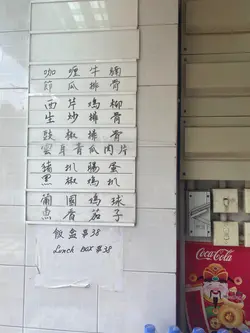 咖喱牛腩
節瓜排骨
西芹鸡柳
生炒排骨
豉椒排骨
雲耳青瓜肉片
豬扒腸蛋
黑椒鸡扒
葡國鸡球
魚香茄子
飯盒$38
Lunch BOX $38
Coca-Cola